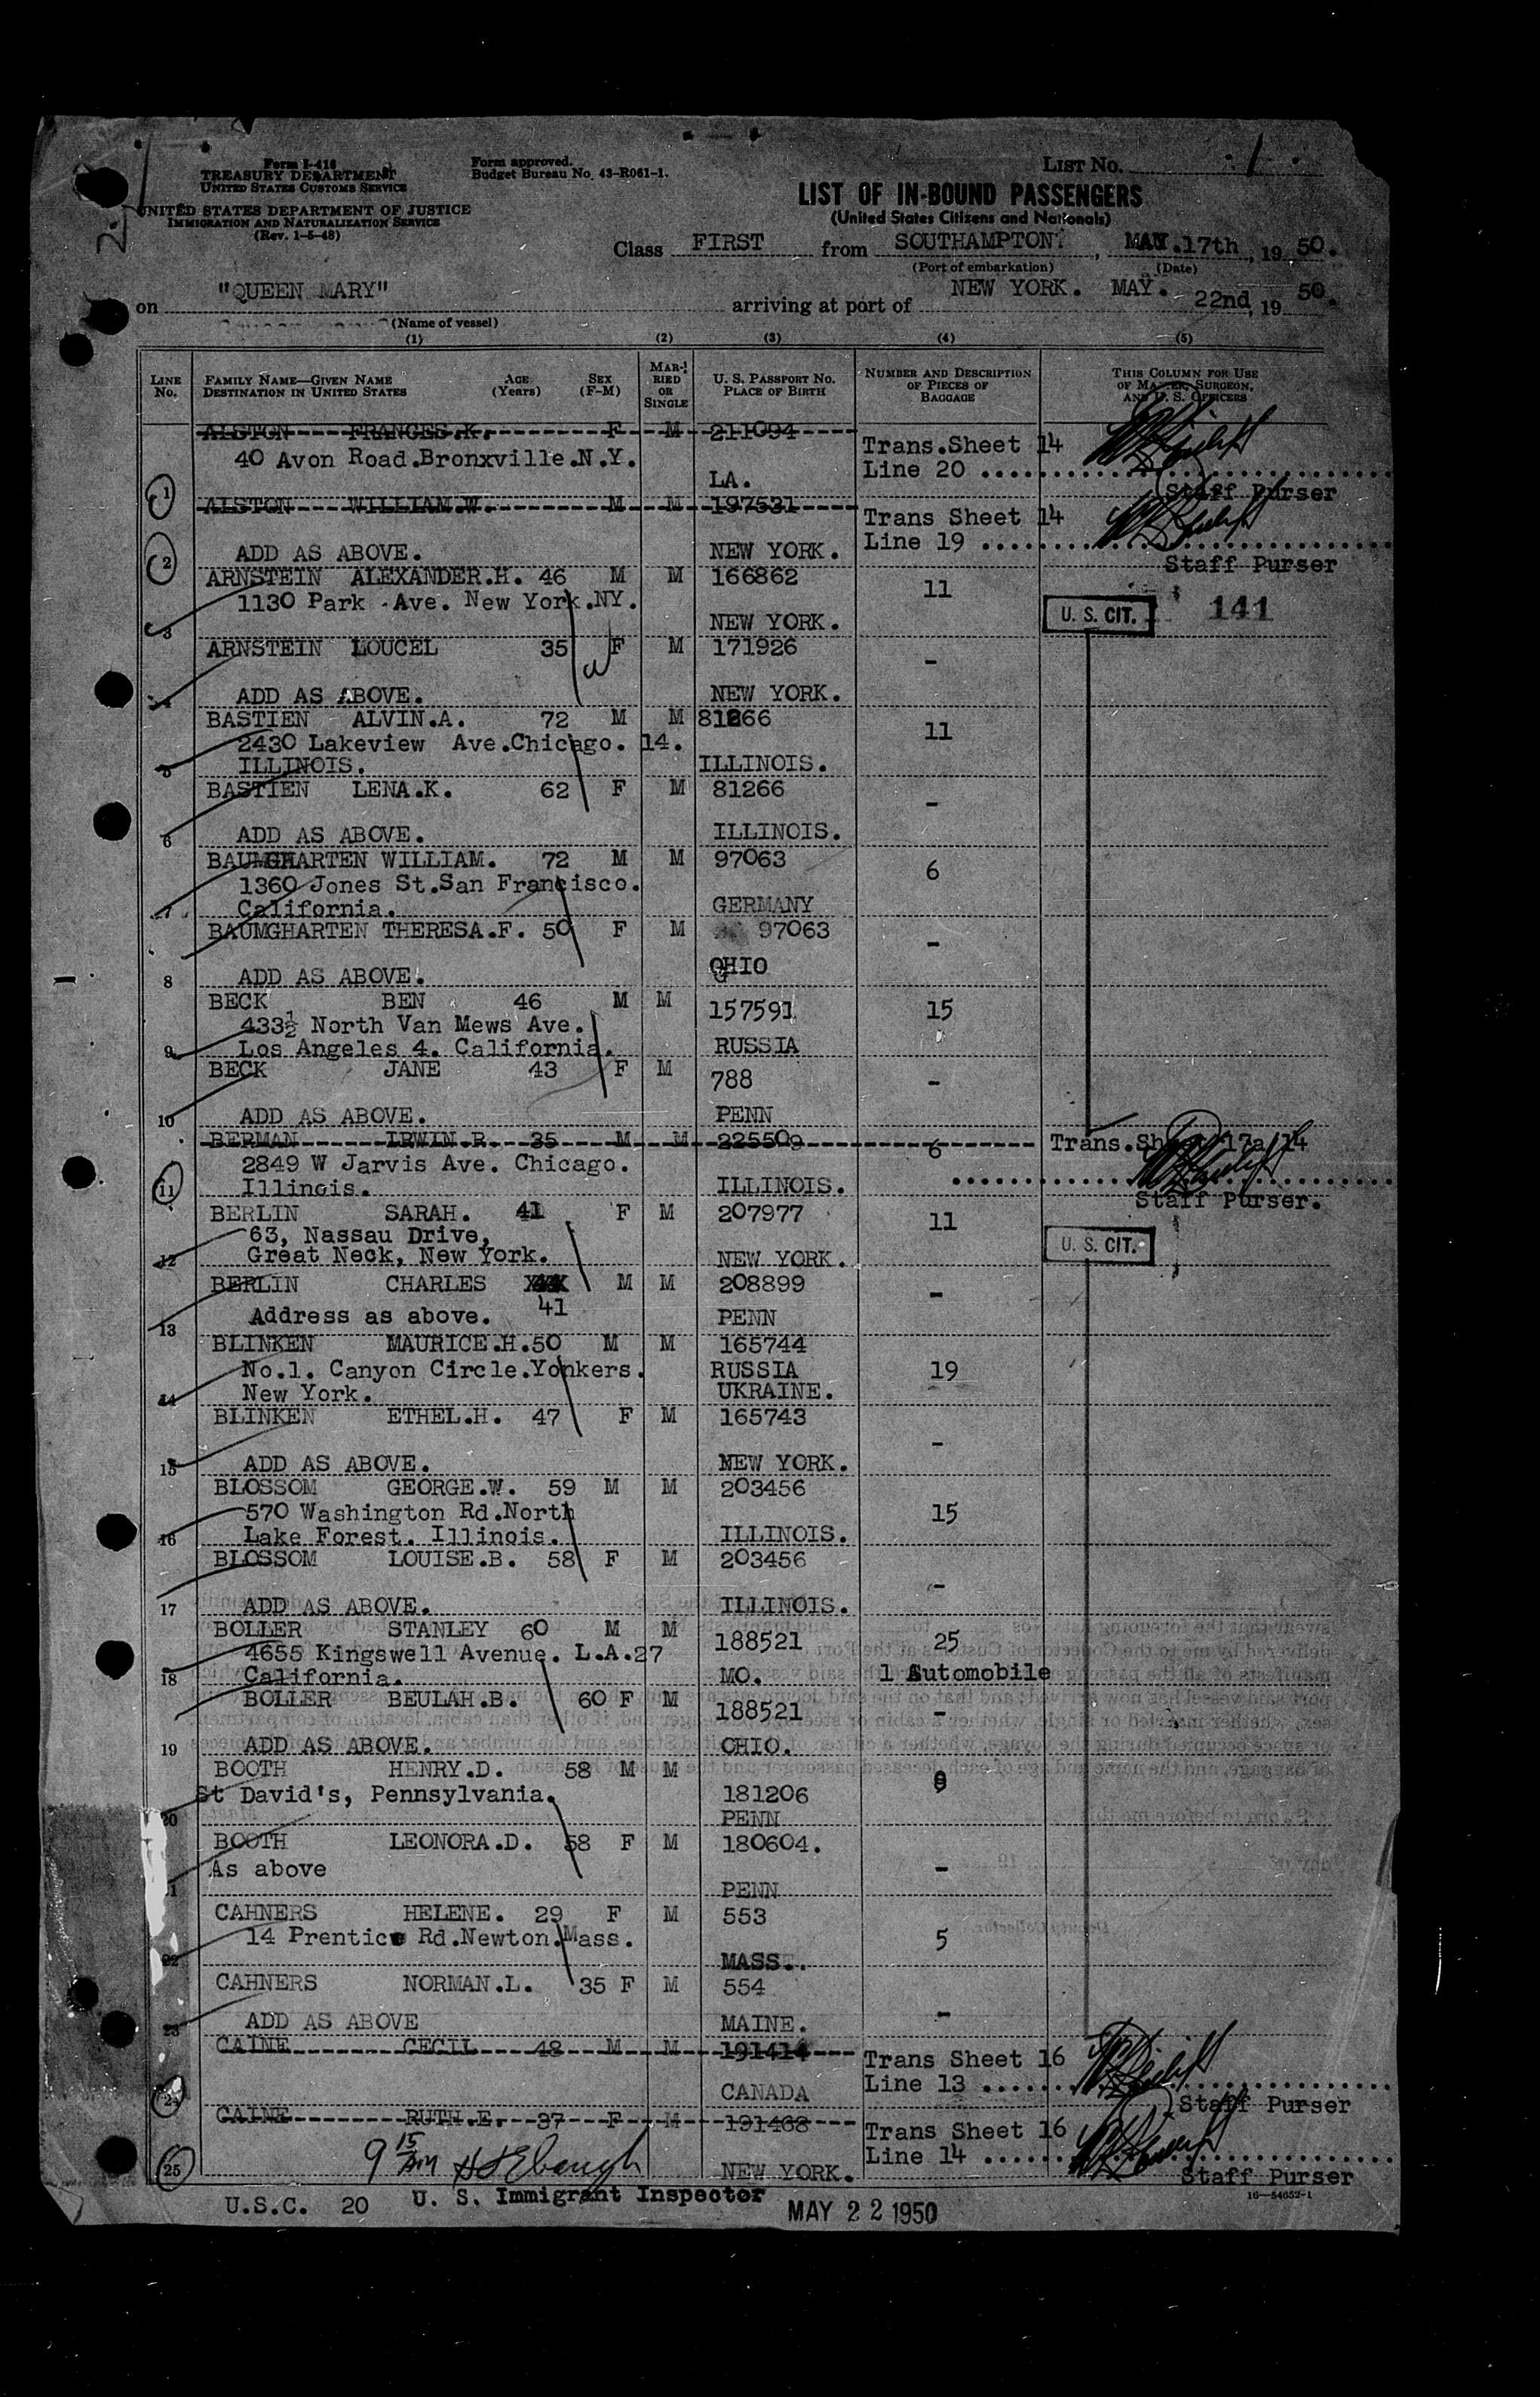 Form I-418
TREASURY DEPARTMENT
UNITED STATES CUSTOMS SERVICE
UNITED STATES DEPARTMENT OF JUSTICE
IMMIGRATION AND NATURALIZATION SERVICE
(Rev. 1-5-48)
Form approved.
Budget Bureau No. 43-R061-1.
LIST NO. 1
LIST OF IN-BOUND PASSENGERS
(United States Citizens and Nationals)
Class FIRST from SOUTHAMPTON, MAY.17th, 19 50.
(Port of embarkation) (Date)
on "QUEEN MARY" arriving at port of NEW YORK. MAY. 22nd, 19 50.
(Name of vessel)
(1) (2) (3) (4) (5)
LINE No. FAMILY NAME—GIVEN NAME DESTINATION IN UNITED STATES AGE (Years) SEX (F-M) MARRIED OR SINGLE U. S. PASSPORT No. PLACE OF BIRTH NUMBER AND DESCRIPTION OF PIECES OF BAGGAGE THIS COLUMN FOR USE OF MASTER, SURGEON, AND U. S. OFFICERS
ALSTON FRANCES.K. F M 211094
40 Avon Road.Bronxville.N.Y. Trans.Sheet 14
Line 20
1 LA. Staff Purser
ALSTON WILLIAM.W. M M 197531
Trans Sheet 14
2 ADD AS ABOVE. NEW YORK. Line 19
Staff Purser
ARNSTEIN ALEXANDER.H. 46 M M 166862 11
1130 Park Ave. New York.NY. U. S. CIT. 141
3 NEW YORK.
ARNSTEIN LOUCEL 35 F M 171926 -
4 ADD AS ABOVE. NEW YORK.
BASTIEN ALVIN.A. 72 M M 81266 11
2430 Lakeview Ave.Chicago. 14.
5 ILLINOIS. ILLINOIS.
BASTIEN LENA.K. 62 F M 81266 -
6 ADD AS ABOVE. ILLINOIS.
BAUMGHARTEN WILLIAM. 72 M M 97063 6
1360 Jones St.San Francisco.
7 California. GERMANY
BAUMGHARTEN THERESA.F. 50 F M 97063 -
8 ADD AS ABOVE. OHIO
BECK BEN 46 M M 157591 15
433½ North Van Mews Ave.
9 Los Angeles 4. California. RUSSIA
BECK JANE 43 F M 788 -
10 ADD AS ABOVE. PENN
BERMAN IRWIN.R. 35 M M 225509 6 Trans.Sheet 17a/14
2849 W Jarvis Ave. Chicago.
11 Illinois. ILLINOIS. Staff Purser.
BERLIN SARAH. 41 F M 207977 11
63, Nassau Drive, U. S. CIT.
12 Great Neck, New York. NEW YORK.
BERLIN CHARLES M M 208899 -
41
13 Address as above. PENN
BLINKEN MAURICE.H.50 M M 165744
No.1. Canyon Circle.Yonkers. RUSSIA 19
14 New York. UKRAINE.
BLINKEN ETHEL.H. 47 F M 165743 -
15 ADD AS ABOVE. NEW YORK.
BLOSSOM GEORGE.W. 59 M M 203456
570 Washington Rd.North 15
16 Lake Forest. Illinois. ILLINOIS.
BLOSSOM LOUISE.B. 58 F M 203456 -
17 ADD AS ABOVE. ILLINOIS.
BOLLER STANLEY 60 M M 188521 25
4655 Kingswell Avenue. L.A.27
18 California. MO. 1 Automobile
BOLLER BEULAH.B. 60 F M 188521 -
19 ADD AS ABOVE. OHIO.
BOOTH HENRY.D. 58 M M
St David's, Pennsylvania. 181206
20 PENN
BOOTH LEONORA.D. 58 F M 180604. -
As above
PENN
CAHNERS HELENE. 29 F M 553
14 Prentice Rd.Newton.Mass. 5
22 MASS.
CAHNERS NORMAN.L. 35 F M 554 -
23 ADD AS ABOVE MAINE.
CAINE CECIL 48 M M 191414
Trans Sheet 16
24 CANADA Line 13
Staff Purser
CAINE RUTH.E. 37 F M 191468
Trans Sheet 16
25 NEW YORK. Line 14
Staff Purser
9 15 AM
U.S.C. 20 U. S. Immigrant Inspector MAY 22 1950
16—54652-1